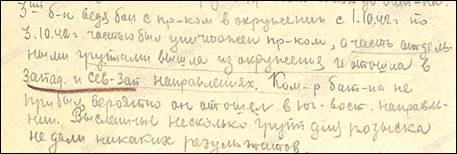 3ий б-н ведя бой с пр-ком в окружении с 1.10.42г по
3.10.42г. частью был уничтожен пр-ком, а часть отдель-
ными группами вышла из окружения и отошла в
Запад. и Сев-Зап направлениях. Ком-р бат-на не
прибыл, вероятно он отошел в юг-вост. направле-
нии. Высланные несколько групп для розыска
не дали никаких результатов